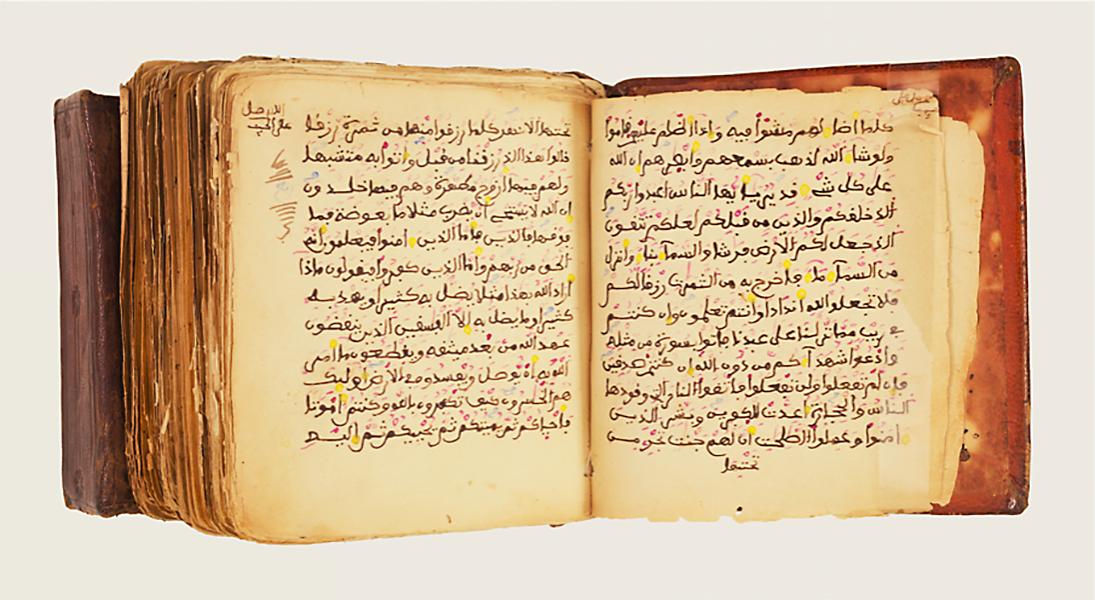 كلما اضا لهم مشوا فيه واذا اظلم عليهم قاموا
ولو شا الله لذهب بسمعهم وابصرهم ان الله
على كل شے قدير يايها الناس اعبدوا ربكم
الذے خلقكم والذين من قبلكم لعلكم تتقون
الذے جعل لكم الارض فرشا والسما بنا وانزل
من السما ما فاخرج به من الثمرت رزقا لكم
فلا تجعلوا لله اندادا وانتم تعلمون وان كنتم
في ريب مما نزلنا على عبدنا فاتوا بسورة من مثله
وادعوا شهداكم من دون الله ان كنتم صدقين
فان لم تفعلوا ولن تفعلوا فاتقوا النار التي وقودها
الناس والحجارة اعدت للكفرين وبشر الذين
امنوا وعملوا الصلحت ان لهم جنت تجرے من
تحتها
تحتها الانهر كلما رزقوا منها من ثمرة رزقا
قالوا هذا الذے رزقنا من قبل واتوا به متشبها
ولهم فيها ازوج مطهرة وهم فيها خلدون
ان الله لا يستحے ان يضرب مثلا ما بعوضة فما
فوقها فاما الذين امنوا فيعلمون انه
الحق من ربهم واما الذين كفروا فيقولون ماذا
اراد الله بهذا مثلا يضل به كثيرا ويهدے به
كثيرا وما يضل به الا الفسقين الذين ينقضون
عهد الله من بعد ميثقه ويقطعون ما امر
الله به ان يوصل ويفسدون في الارض اوليك
هم الخسرون كيف تكفرون بالله وكنتم اموتا
فاحيكم ثم يميتكم ثم يحييكم ثم اليه